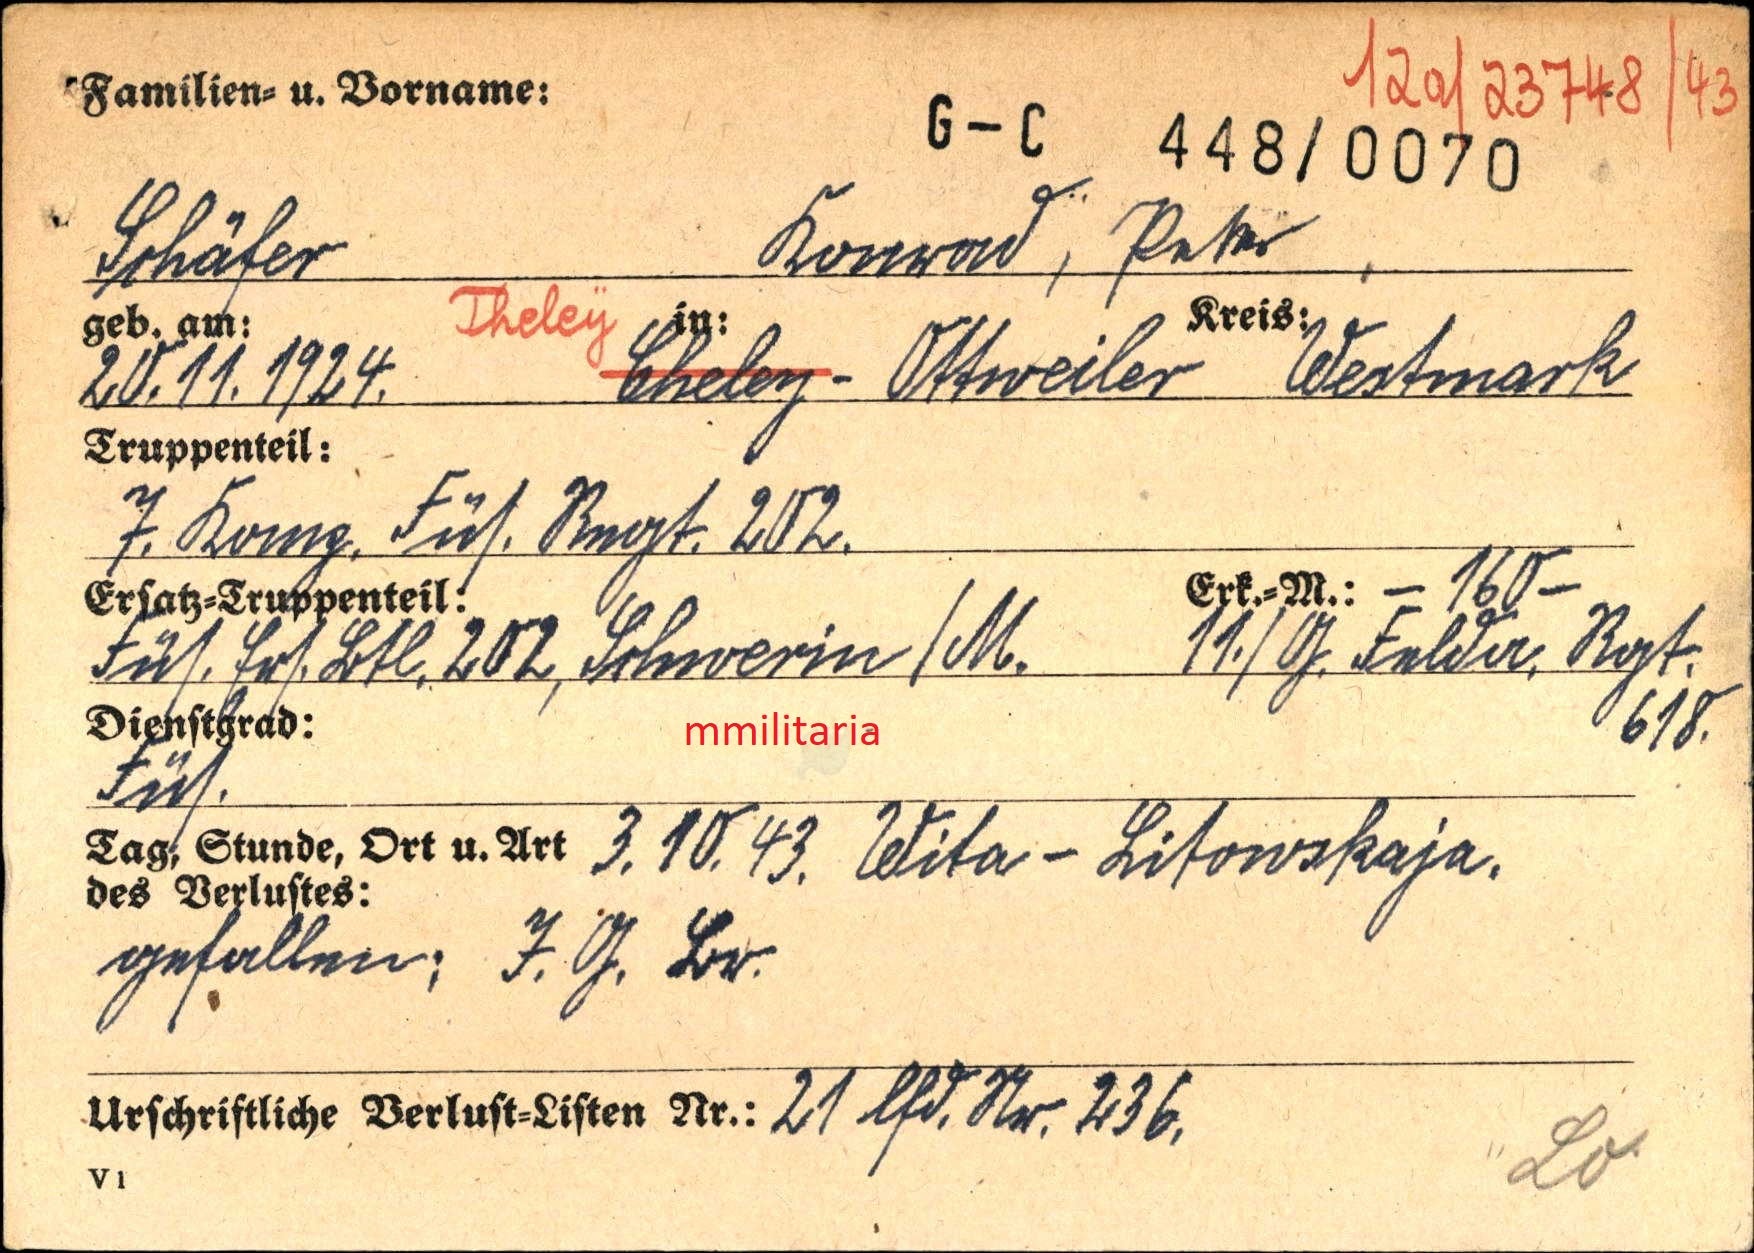 12a/23748/43
Familien- u. Vorname:
G-C 448/0070
Schäfer Konrad, Peter,
geb. am: Theley in: Kreis:
20.11.1924. Cheley - Ottweiler Westmark
Truppenteil:
7. Komp. Füs. Regt. 202.
Ersatz-Truppenteil: Erk.-M.: - 160 -
Füs. Ers. Btl. 202, Schwerin /M. 11./G. Felda. Rgt.
618.
Dienstgrad:
mmilitaria
Füs.
Tag, Stunde, Ort u. Art 3.10.43. Wita - Litowskaja.
des Verlustes:
gefallen; J. G.
Urschriftliche Verlust-Listen Nr.: 21 lfd. Nr. 236.
V 1